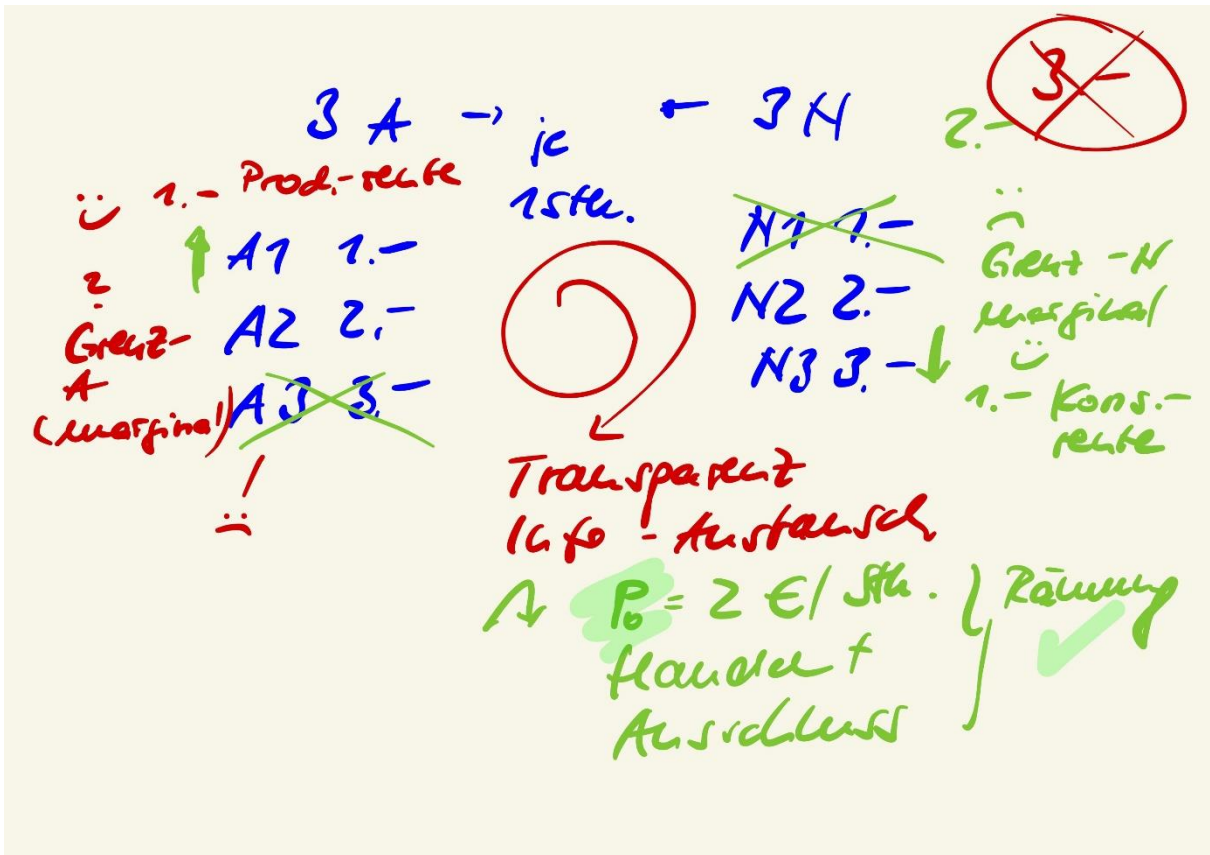 3 A → je ← 3 N
1 Stk.
3.-
2.-
1.- Prod.-rente
A1 1.-
A2 2.-
A3 3.-
Grenz-
A
(marginal)
N1 1.-
N2 2.-
N3 3.-
Grenz-N
marginal
1.- Kons.-
rente
Transparenz
Info-Austausch
P₀ = 2 €/Stk.
Handel +
Ausschluss
Räumung